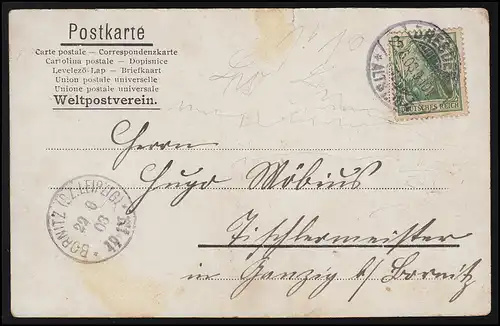 Postkarte
Carte postale – Correspondenzkarte
Cartolina postale – Dopisnice
Levelező-Lap – Briefkaart
Union postale universelle
Unione postale universale
Weltpostverein.
DRESDEN
DEUTSCHES REICH
Herrn
Hugo Möbius
Tischlermeister
in Ganzig b/ Bornitz
BORNITZ (BZ. LEIPZIG)